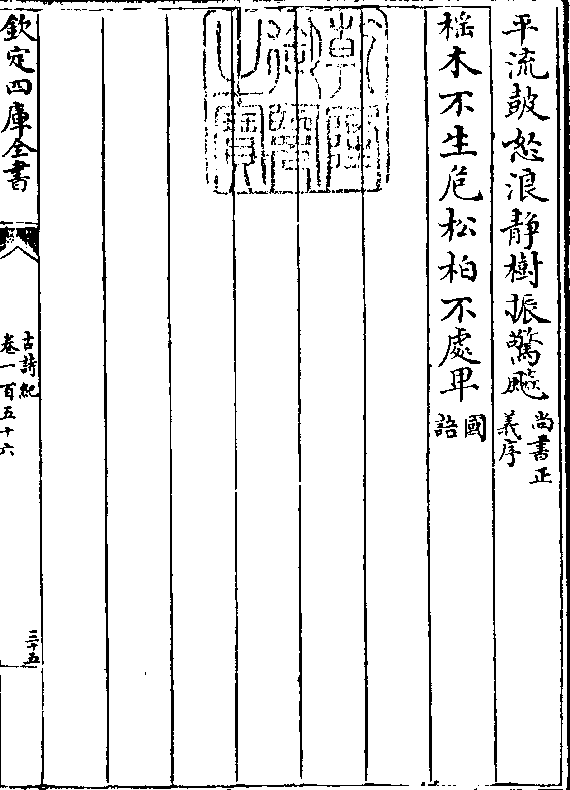 平流鼓怒浪静樹振驚飈尚書正義序
榣木不生危松柏不處卑國語
乾隆御覽之寶
欽定四庫全書
古詩紀
卷一百五十六
三十五